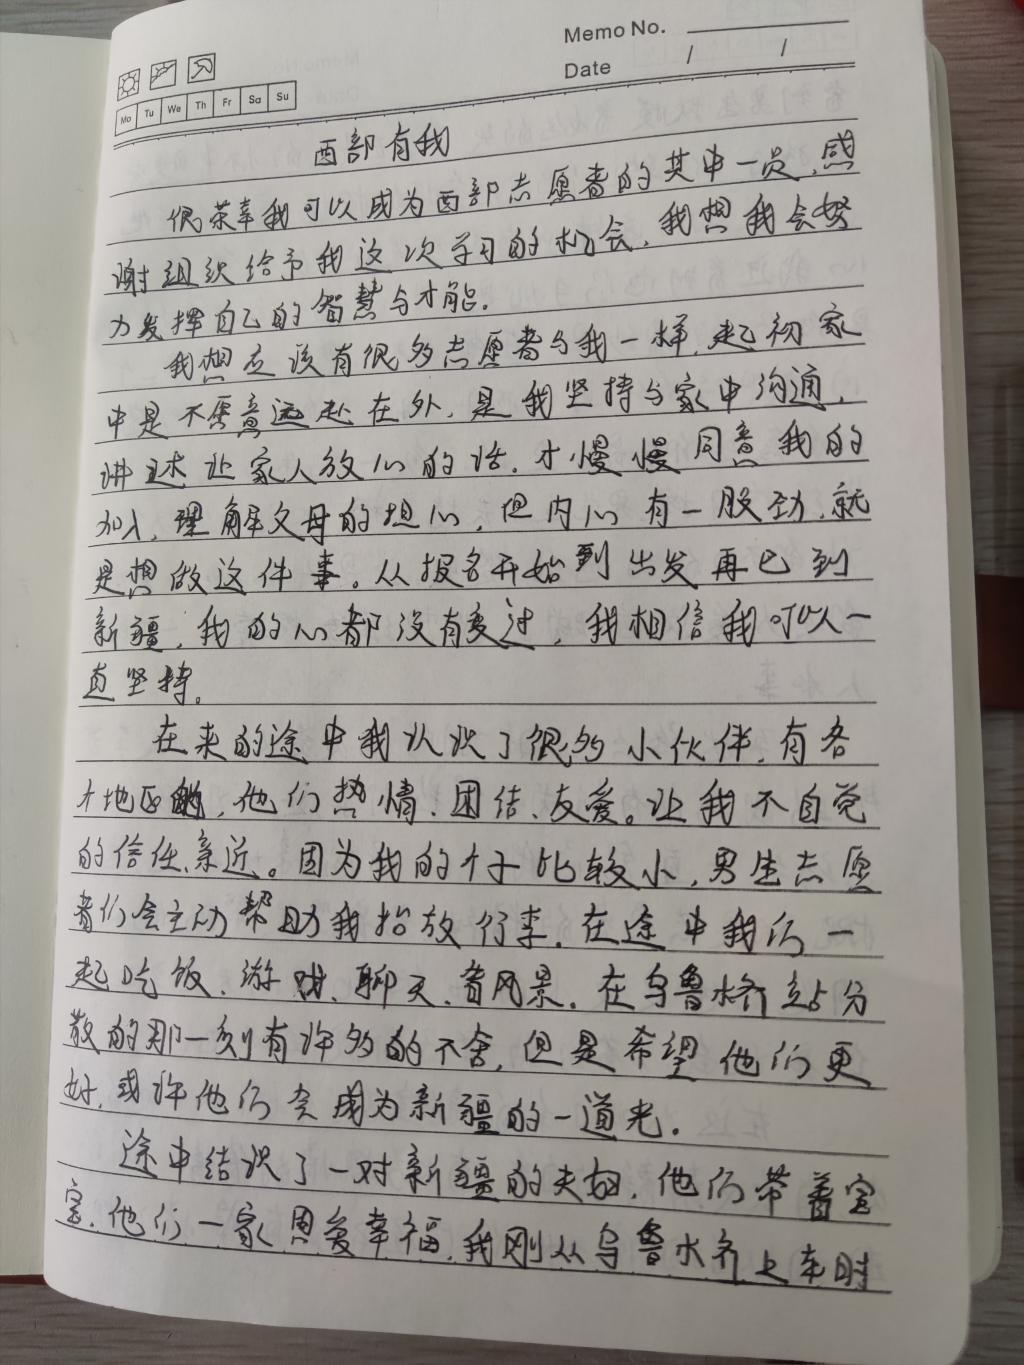 Memo No.
Date / /
Mo Tu We Th Fr Sa Su
西部有我
很荣幸我可以成为西部志愿者的其中一员,感
谢组织给予我这次学习的机会,我想我会努
力发挥自己的智慧与才能.
我想应该有很多志愿者与我一样,起初家
中是不愿意远赴在外,是我坚持与家中沟通,
讲述让家人放心的话,才慢慢同意我的
加入,理解父母的担心,但内心有一股劲,就
是想做这件事。从报名开始到出发再已到
新疆,我的心都没有变过,我相信我可以一
直坚持。
在来的途中我认识了很多小伙伴,有各
个地区的,他们热情、团结、友爱。让我不自觉
的信任,亲近。因为我的个子比较小,男生志愿
者们会主动帮助我抬放行李.在途中我们一
起吃饭、游戏、聊天、看风景.在乌鲁木齐站分
散的那一刻有许多的不舍,但是希望他们更
好,或许他们会成为新疆的一道光.
途中结识了一对新疆的夫妇,他们带着宝
宝,他们一家恩爱幸福,我刚从乌鲁木齐上车时